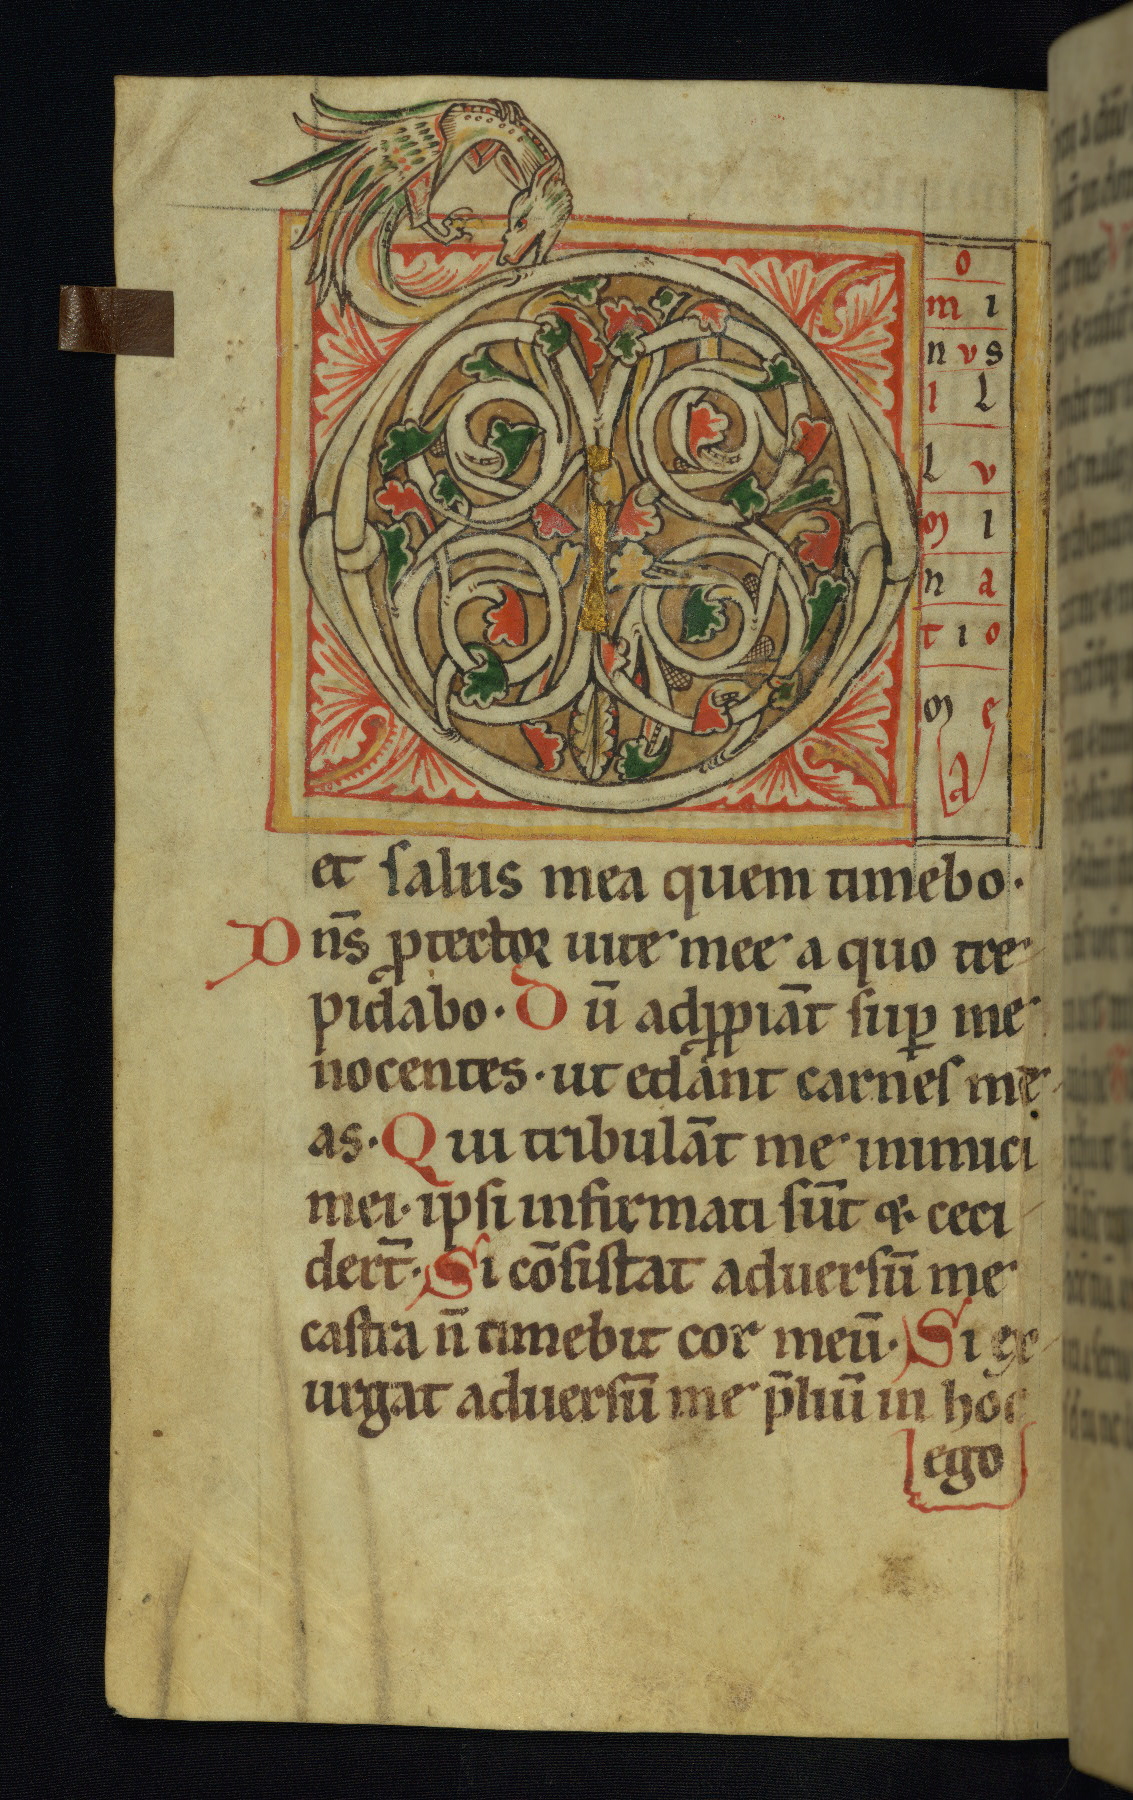 D
o
m i
n v s
i l
l v
m i
n a
t i o
m e
a
et salus mea quem timebo·
Dn̄s ꝓtector uite mee a quo tre
pidabo· Dū adꝓpiāt suꝑ me
nocentes· ut edant carnes me
as· Qui tribulāt me inimici
mei· ipsi infirmati sūt ⁊ ceci
dert̄· Si cōsistat aduersū me
castra n̄ timebit cor meū· Si ex
urgat aduersū me p̄liū in hoc
ego